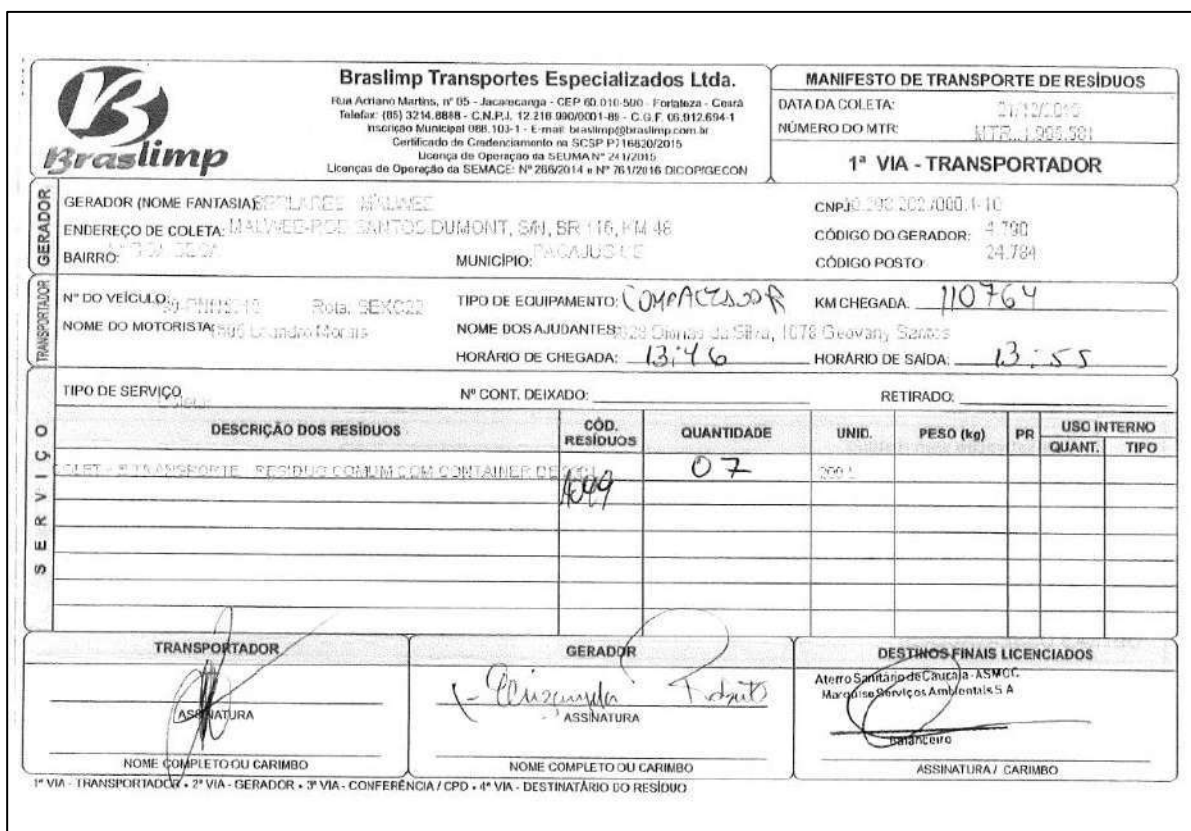 Braslimp
Braslimp Transportes Especializados Ltda.
Rua Adriano Martins, nº 05 - Jacarecanga - CEP 60.010-590 - Fortaleza - Ceará
Telefax: (85) 3214.8888 - C.N.P.J. 12.216.990/0001-89 - C.G.F. 06.912.694-1
Inscrição Municipal 088.103-1 - E-mail: braslimp@braslimp.com.br
Certificado de Credenciamento na SCSP
Licença de Operação da SEUMA Nº 241/2015
Licenças de Operação da SEMACE: Nº 266/2014 e Nº 761/2016 DICOP/GECON
MANIFESTO DE TRANSPORTE DE RESÍDUOS
DATA DA COLETA:
NÚMERO DO MTR:
1ª VIA - TRANSPORTADOR
GERADOR
GERADOR (NOME FANTASIA): MALWEE
CNPJ:
ENDEREÇO DE COLETA: SANTOS DUMONT, S/N, BR 116, KM 48
CÓDIGO DO GERADOR: 4.790
BAIRRO:
MUNICÍPIO: PACAJUS CE
CÓDIGO POSTO: 24.784
TRANSPORTADOR
Nº DO VEÍCULO: Rota: SEXC22
TIPO DE EQUIPAMENTO: COMPACTADOR
KM CHEGADA: 110764
NOME DO MOTORISTA: Leandro Morais
NOME DOS AJUDANTES: Dionas da Silva, 1078 Geovany Santos
HORÁRIO DE CHEGADA: 13:46
HORÁRIO DE SAÍDA: 13:55
SERVIÇO
TIPO DE SERVIÇO
Nº CONT. DEIXADO:
RETIRADO:
DESCRIÇÃO DOS RESÍDUOS
CÓD. RESÍDUOS
QUANTIDADE
UNID.
PESO (kg)
PR
USO INTERNO
QUANT.
TIPO
TRANSPORTE RESIDUO COMUM COM CONTAINER DE
07
TRANSPORTADOR
ASSINATURA
NOME COMPLETO OU CARIMBO
GERADOR
ASSINATURA
NOME COMPLETO OU CARIMBO
DESTINOS FINAIS LICENCIADOS
Aterro Sanitário de Caucaia - ASMOC
Marquise Serviços Ambientais S A
Balanceiro
ASSINATURA / CARIMBO
1ª VIA - TRANSPORTADOR • 2ª VIA - GERADOR • 3ª VIA - CONFERÊNCIA / CPD • 4ª VIA - DESTINATÁRIO DO RESÍDUO